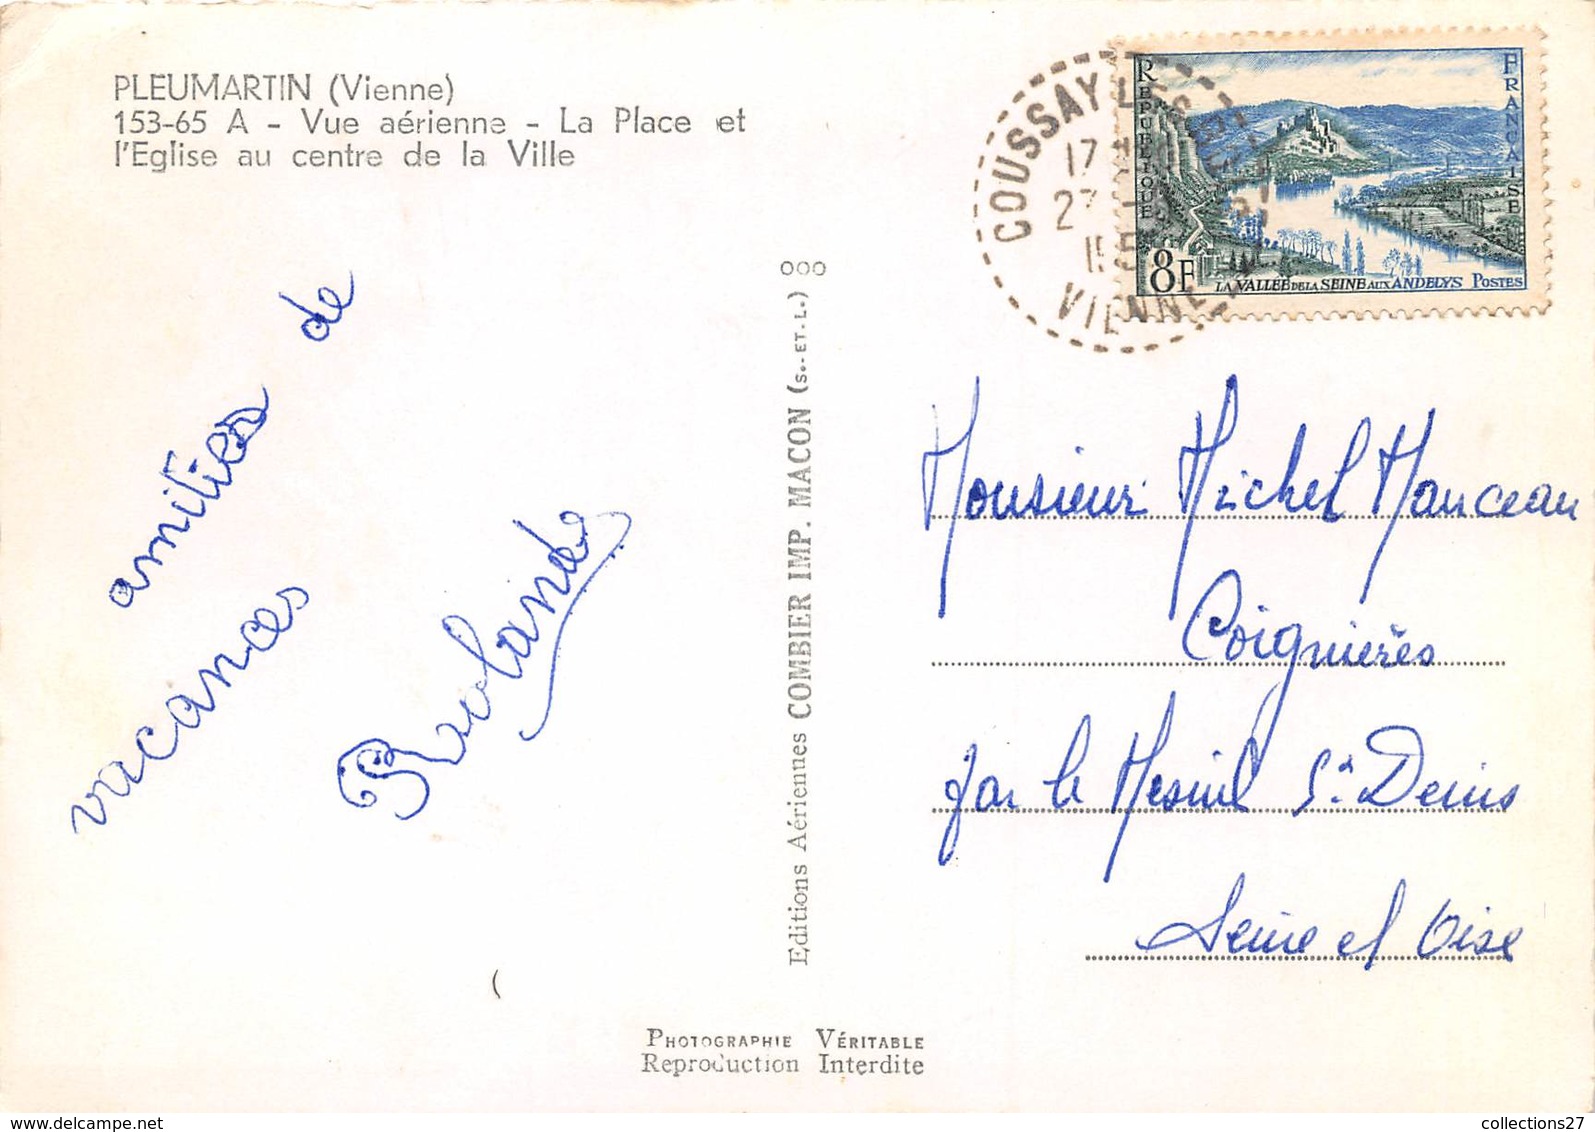 PLEUMARTIN (Vienne)
153-65 A - Vue aérienne - La Place et
l'Eglise au centre de la Ville
amitiés de
vacances
Rolande
Editions Aériennes COMBIER IMP. MACON (S.-ET-L.) OOO
COUSSAY LES BOIS
17
27
195
VIENNE
REPUBLIQUE
FRANCAISE
8F
LA VALLEE DE LA SEINE AUX ANDELYS POSTES
Monsieur Michel Manceau
Coignières
par le Mesnil St Denis
Seine et Oise
PHOTOGRAPHIE VÉRITABLE
Reproduction Interdite
collections27